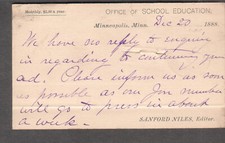 OFFICE OF SCHOOL EDUCATION,
Minneapolis, Minn. Dec 20 1888.
We have no reply to enquiry
in regarding to continuing your
ad. Please inform us as soon
as possible as our Jan number
will go to press in about
a week.
SANFORD NILES, Editor.